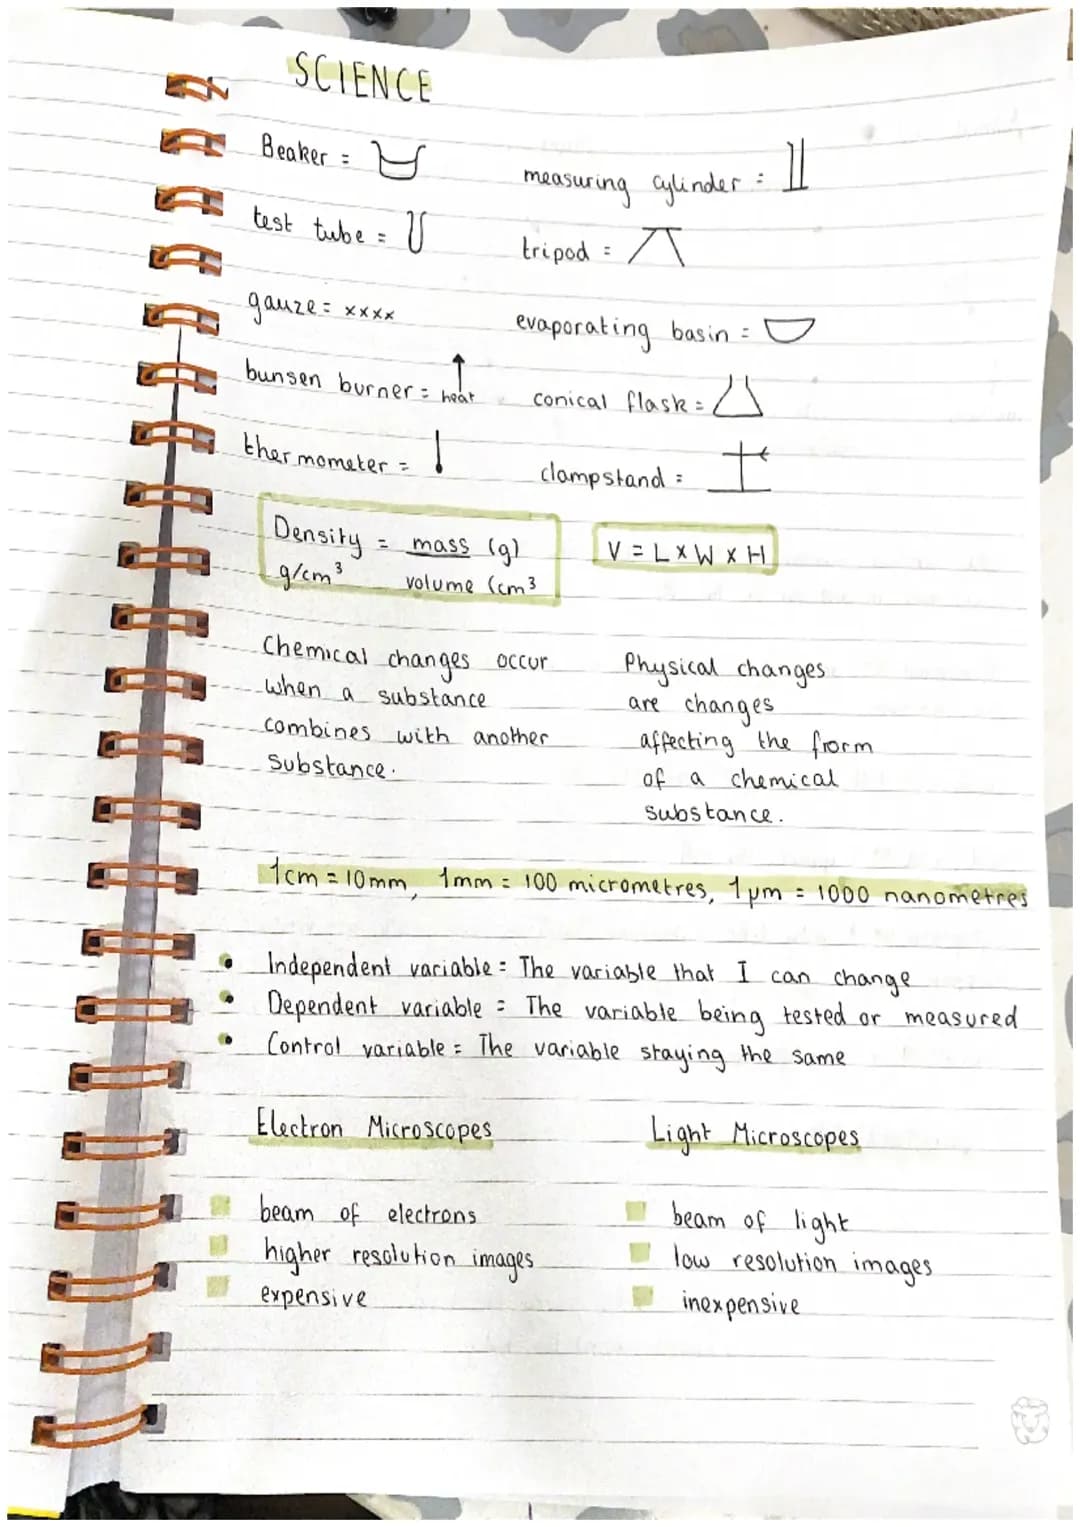 SCIENCE
Beaker =
measuring cylinder =
test tube =
tripod =
gauze = xxxx
evaporating basin =
bunsen burner = heat
conical flask =
thermometer =
clampstand =
Density = mass (g)
g/cm³ volume (cm³
V = L x W x H
Chemical changes occur
when a substance
combines with another
substance.
Physical changes
are changes
affecting the form
of a chemical
substance.
1cm = 10mm, 1mm = 100 micrometres, 1µm = 1000 nanometres
• Independent variable = The variable that I can change
• Dependent variable = The variable being tested or measured
• Control variable = The variable staying the same
Electron Microscopes
beam of electrons
higher resolution images
expensive
Light Microscopes
beam of light
low resolution images
inexpensive